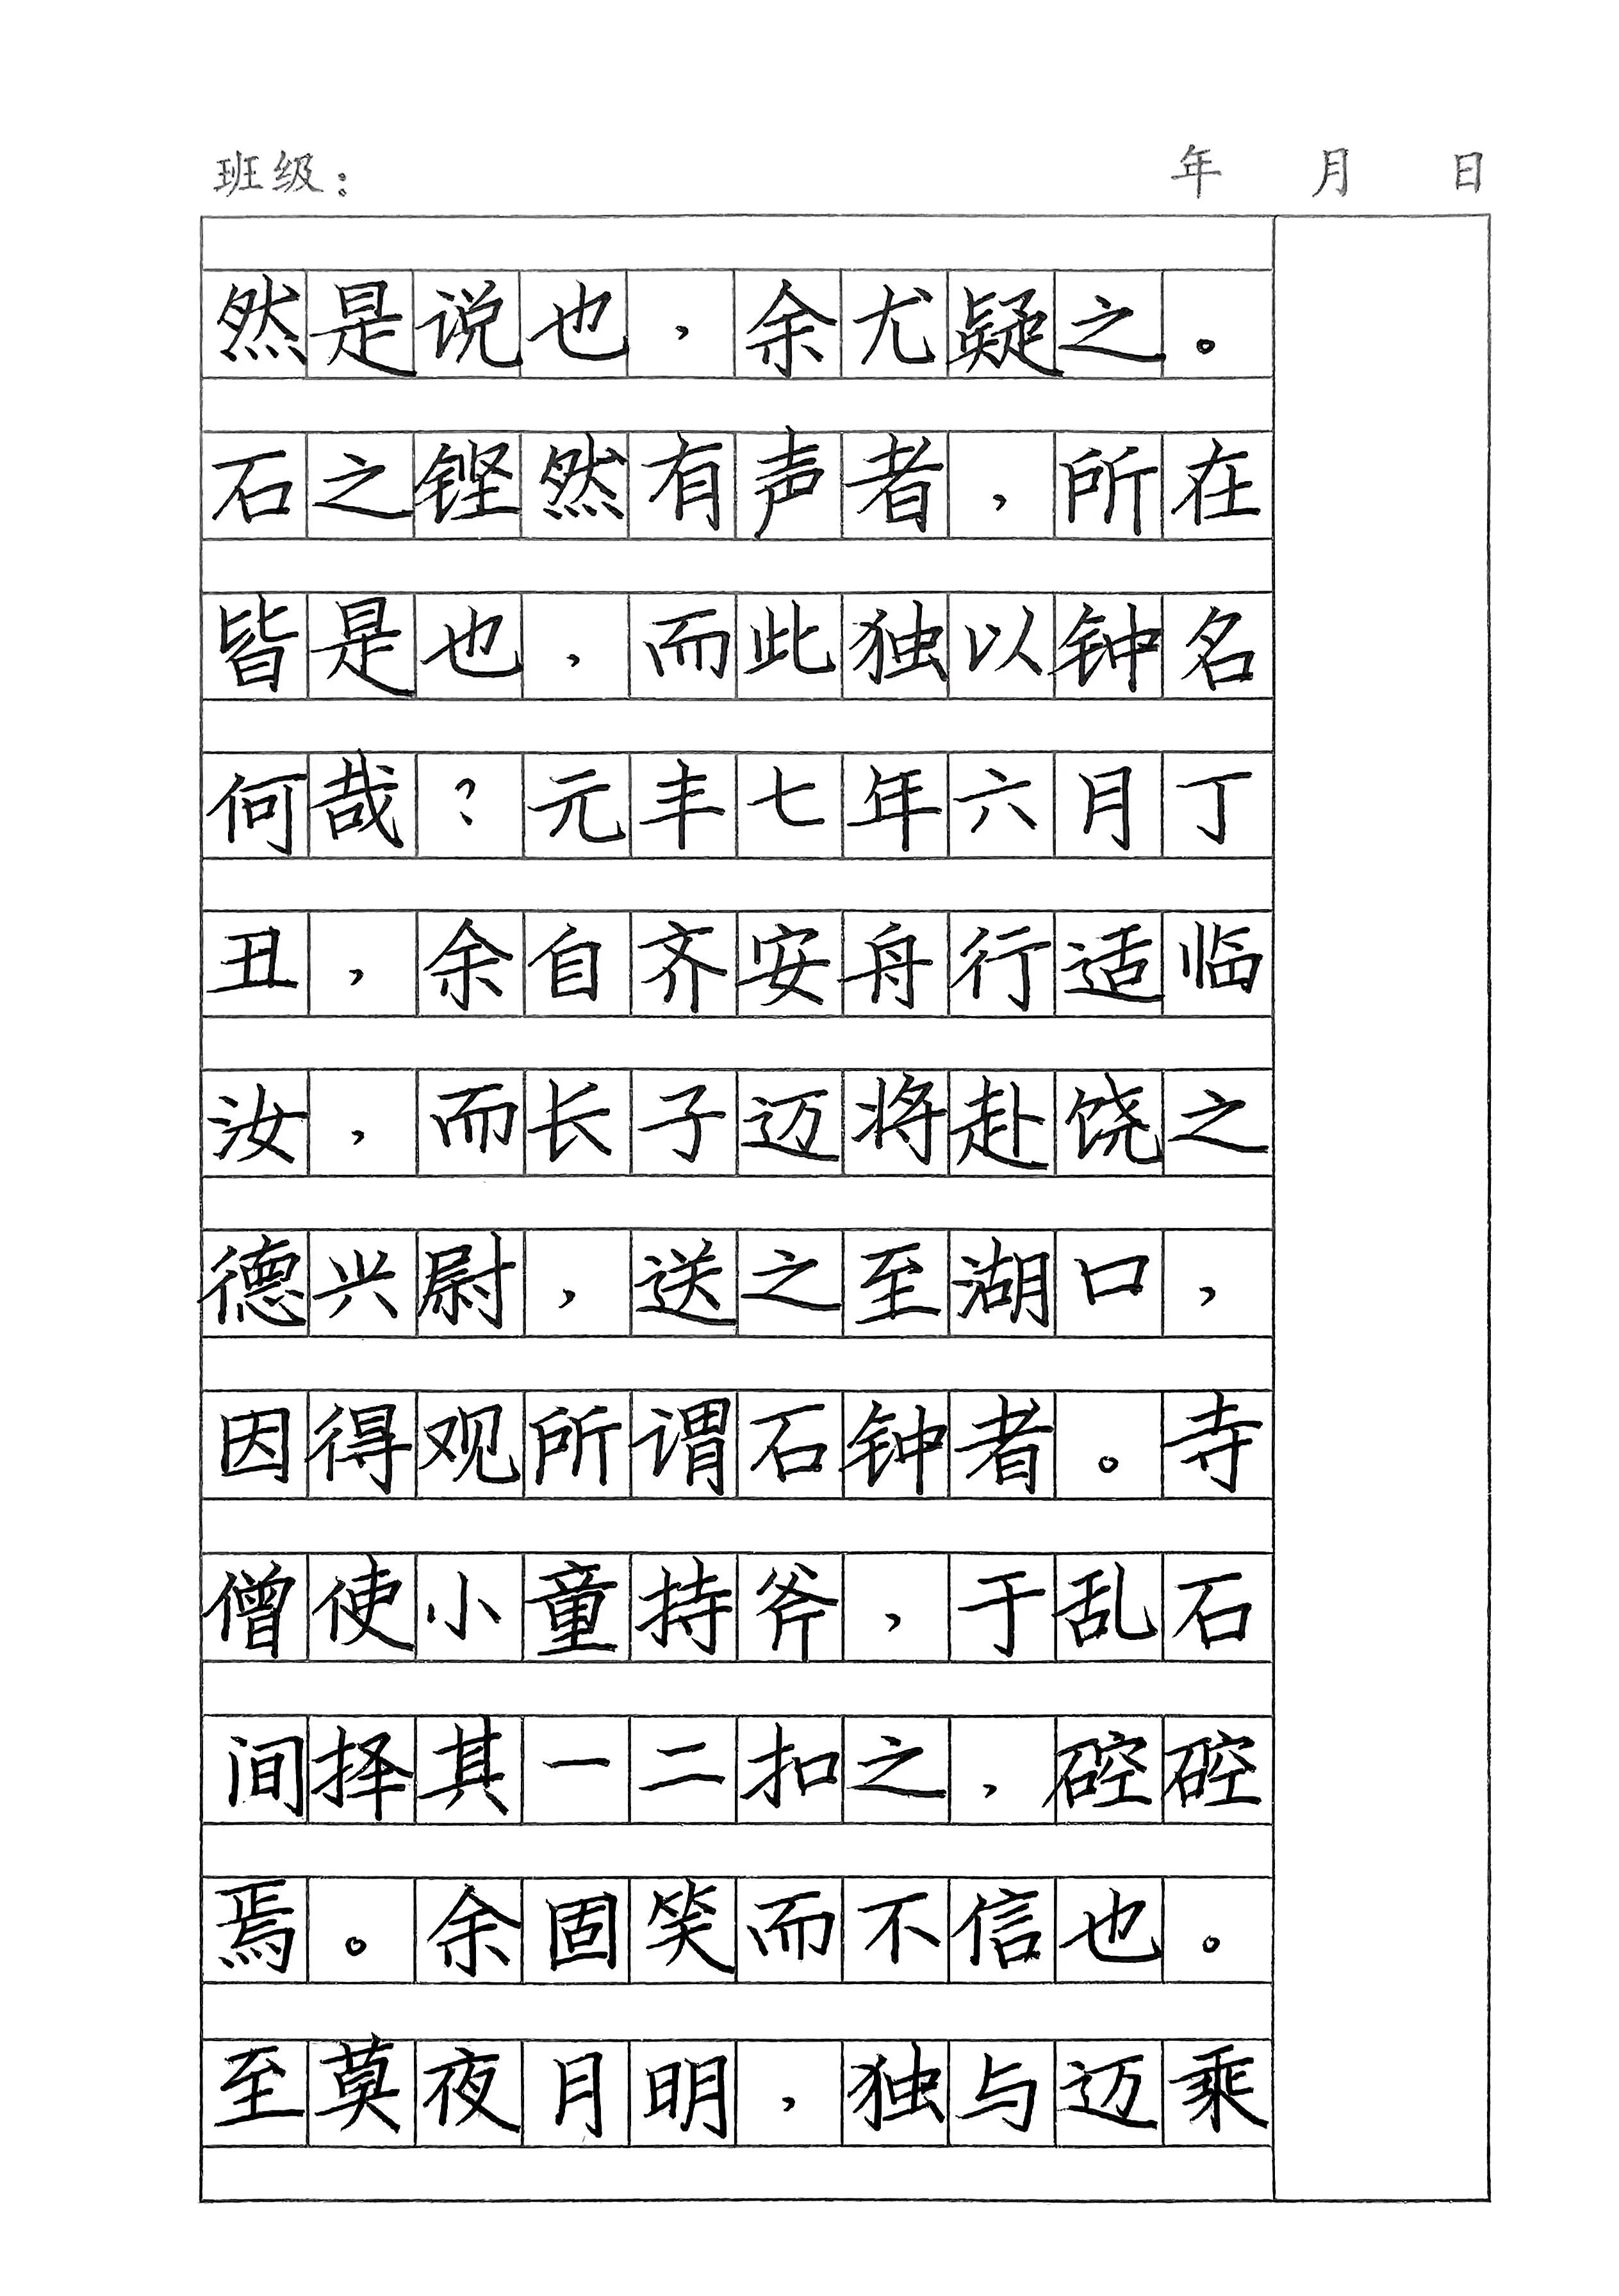 班级： 年 月 日
然是说也，余尤疑之。
石之铿然有声者，所在
皆是也，而此独以钟名
何哉？元丰七年六月丁
丑，余自齐安舟行适临
汝，而长子迈将赴饶之
德兴尉，送之至湖口，
因得观所谓石钟者。寺
僧使小童持斧，于乱石
间择其一二扣之，硿硿
焉。余固笑而不信也。
至莫夜月明，独与迈乘